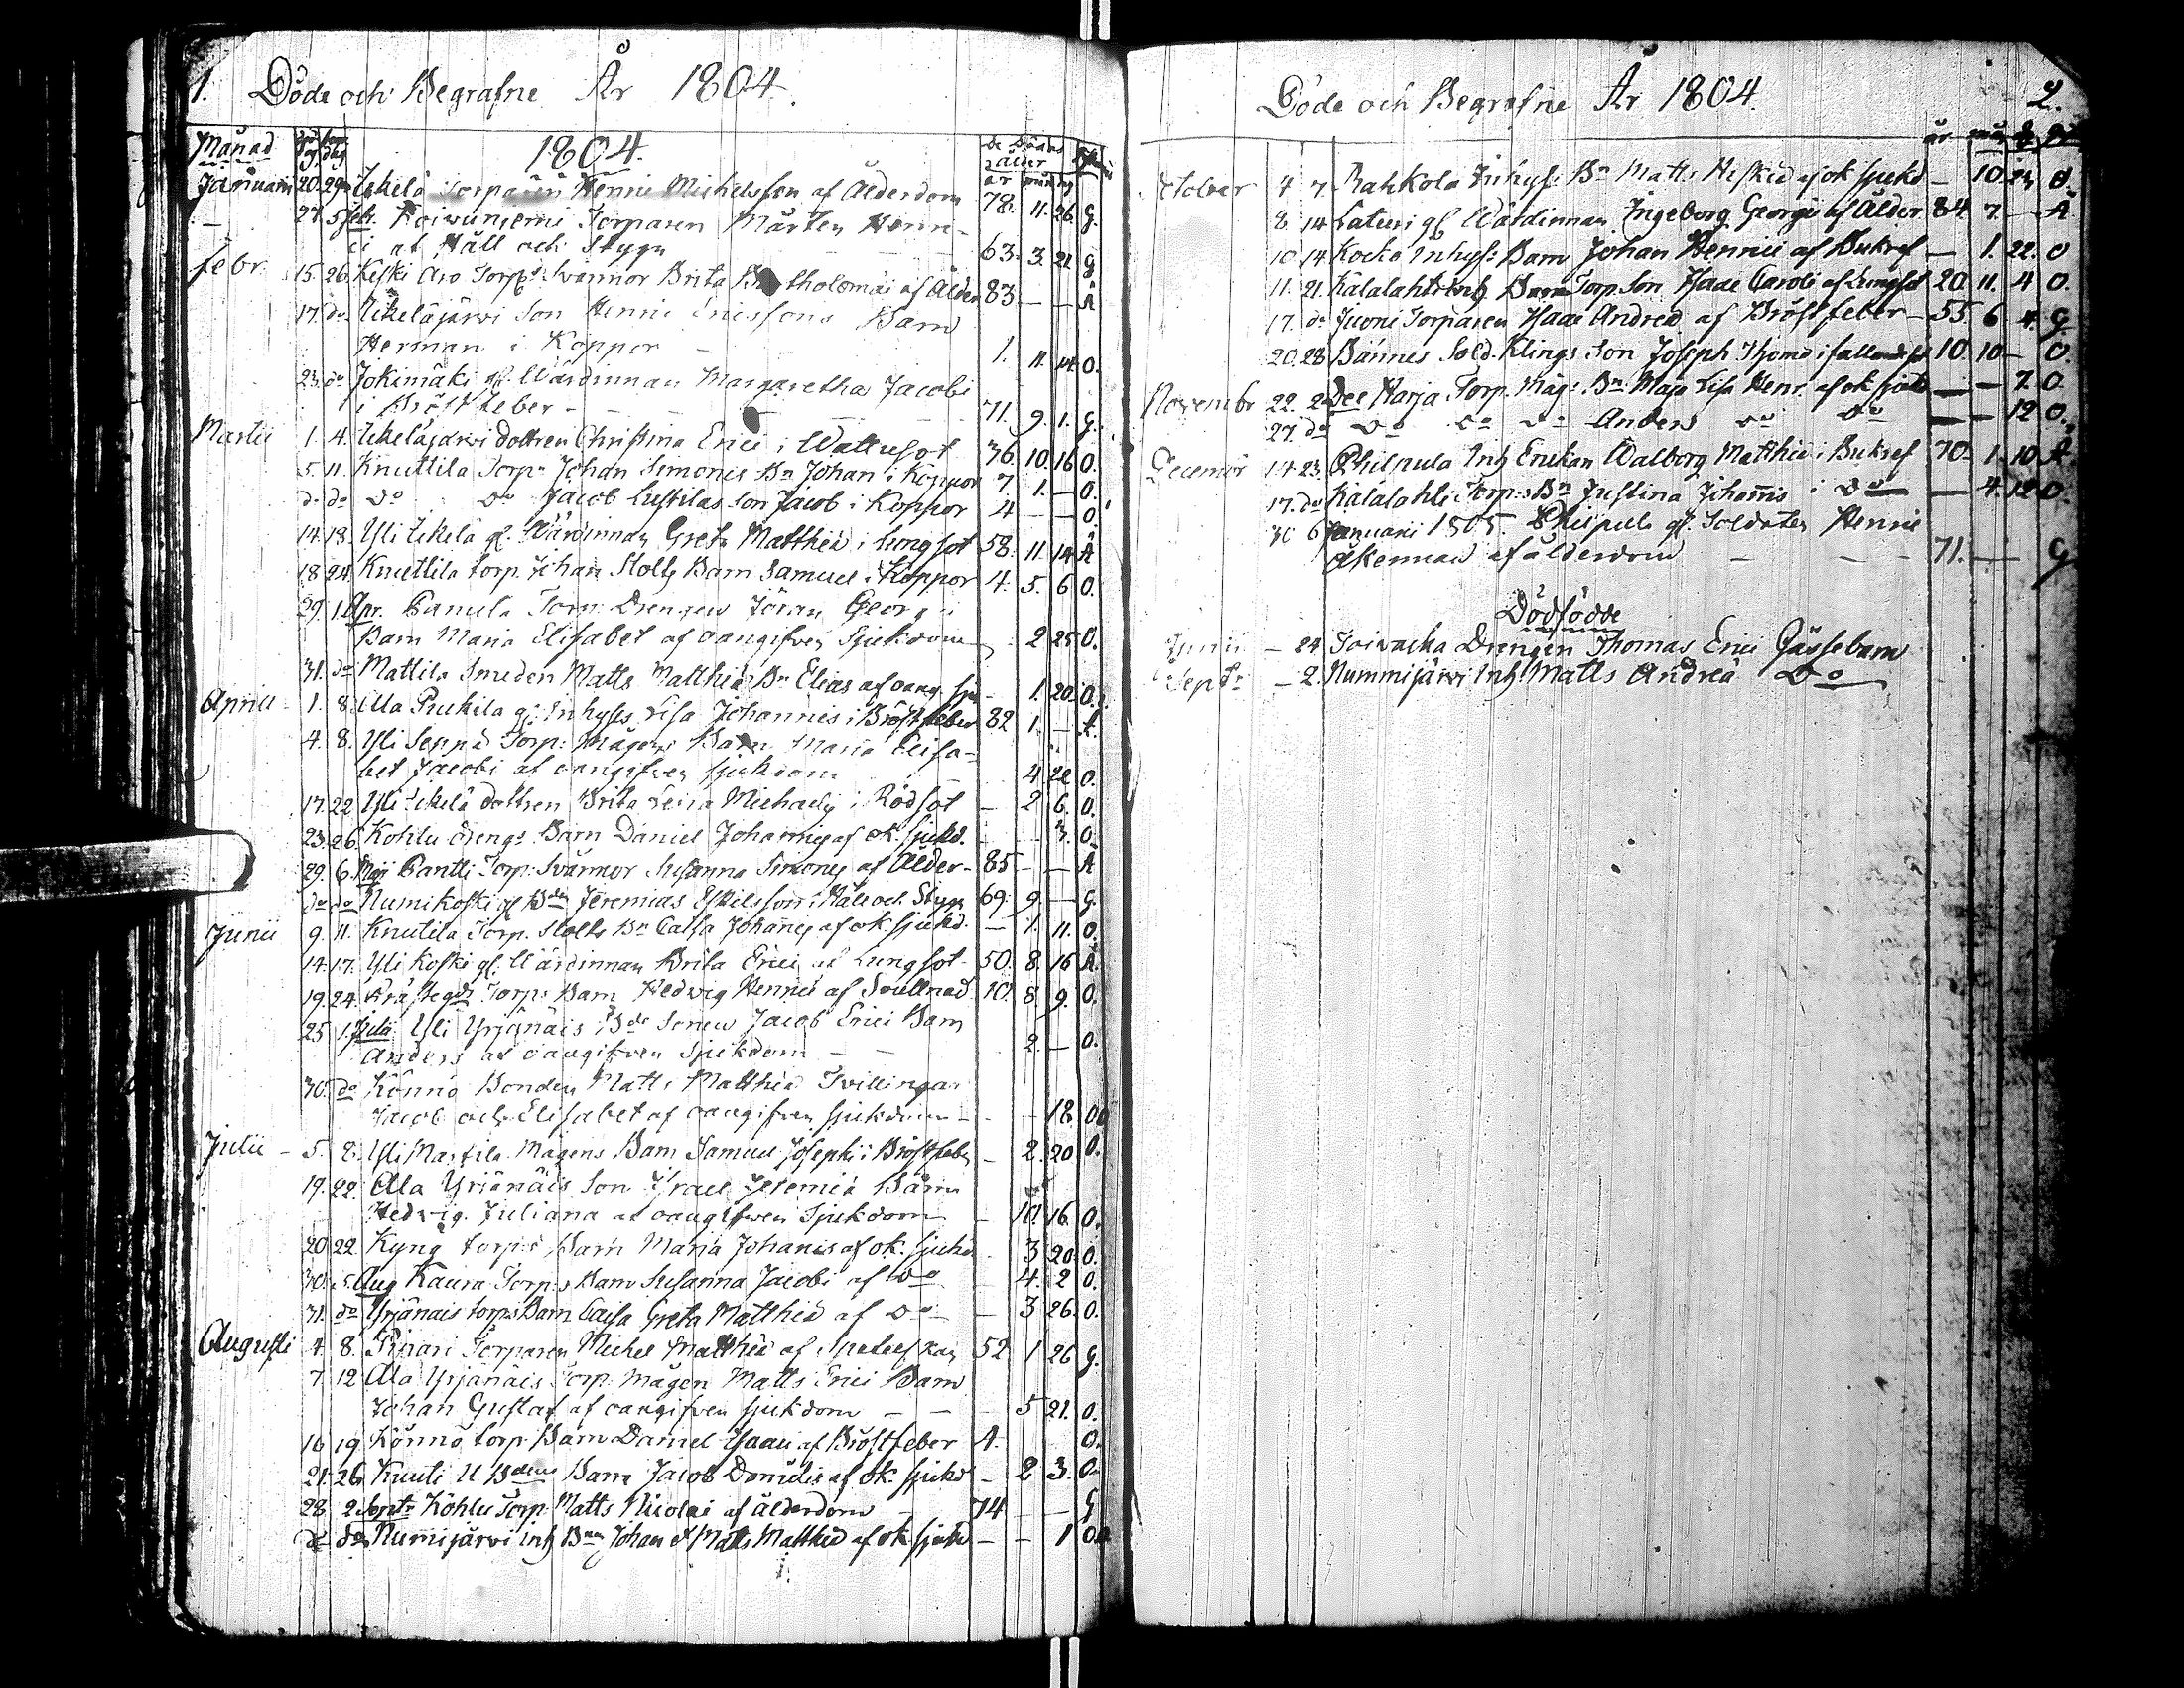 1. Döde och Begrafne År 1804.
Månad 1804. De Dödas ålder
år mån dag
Januarii 20. 29. Ikelä Torparen Henric Michelsson af Ålderdom 78. 11. 26. G.
— 27. 5 febr. Koivuniemi Torparen Mårten Henri-
ci af Håll och Stygn 63. 3. 21. G
febr. 15. 26. Keski Aro Torp: Svärmor Brita Bartholomæi af Ålder 83 — — Ä
17. do Ikeläjärvi Son Henric Ericssons Barn
Herman i Koppor — 1. 11. 14. O.
23. do Jokimäki gl. Wärdinnan Margaretha Jacobi
i Bröstfeber — — — 71. 9. 1. G.
Martii 1. 4. Ikeläjärvi dottren Christina Erici i Wattusot 36. 10. 16 O.
5. 11. Knuttila Torp: Johan Simonis Bn Johan i Koppor 7 1. — O.
do do Do Do Jacob Lustilas Son Jacob i Koppor 4 — — O.
14. 18. Yli Ikelä gl. Wärdinnan Greta Matthiæ i Lungsot 58. 11. 14 Ä
18 24. Knuttila torp. Johan Stolts Barn Samuel i Koppor 4. 5. 6 O.
29. 1. Apr. Panula Torp: Drengen Jöran Georgii
Barn Maria Elisabet af oangifven Sjukdom 2 25 O.
31. do Mattila Smeden Matts Matthiæ Bn Elias af oang. sju — 1. 20. O.
Aprill 1. 8. Ala Prukila gl. Inhyses Lisa Johannis i Bröstfeber 82 1. — Ä.
4. 8. Yli Seppä Torp: Mågens Barn Maria Elisa-
bet Jacobi af oangifven sjukdom 4 22 O.
17. 22 Yli Ikelä dottren Brita Leena Michaelis i Rödsot — 2 6. O.
23. 26. Kohlu Drengs Barn Daniel Johannis af ok. sjukd. — 3. O.
29. 6. Maji Pantti Torp: Svärmor Susanna Simonis af Ålder — 85 — — Ä
do do Numikoski gl. Bdn Jeremias Eskelsson i Håll och Stygn 69. 9. — G.
Junii 9. 11. Knutila Torp. Stolts Bn Caisa Johannis af ok. sjukd. — 1. 11. O.
14. 17. Yli Koski gl. Wärdinnan Brita Erici af Lungsot 50. 8. 16 Ä.
19. 24. Torp: Barn Hedvig Henrici af Svullnad 10. 8. 9. O.
25 1. Julii Yli Yrjänäis Bde Sonen Jacob Erici Barn
Anders af oangifven Sjukdom — — 2. — O.
30. do Könnö Bonden Matts Matthiæ Tvillingar
Jacob och Elisabet af oangifven sjukdom — — 18 OO
Julii — 5. 8. Yli Martila Mågens Barn Samuel Josephi i Bröstfeber — 2. 20 O.
19. 22. Ala Yrjänäis Son Israel Jeremiæ Barn
Hedvig Juliana af oangifven Sjukdom — 10. 16 O.
20 22. Kyng torp:s Barn Maria Johannis af ok. sjukd 3 20. O.
30. 5. Aug Kaura Torp:s Barn Susanna Jacobi af Do — 4. 2 O.
31. do Yrjänäis torp:s Barn Caisa Greta Matthiæ af Do — 3 26. O.
Augusti 4. 8. Torparen Michel Matthiæ af 52 1 26 G.
7. 12 Ala Yrjänäis Torp. mågen Matts Erici Barn
Johan Gustaf af oangifven sjukdom — — 5 21. O.
16 19 Könnö torp. Barn Daniel Isaaci af Bröstfeber 4. O.
21. 26. Knuti Barn Jacob Danielis af ok. sjukd — 2 3. O.
28 2 Septr Kohlu Torp. Matts Nicolai af ålderdom — 74 — — G
do do Numijärvi Inh Bn Johan et Matts Matthiæ af ok sjukd — — 1 OO
Döde och Begrafne År 1804. 2.
år mån d
October 4 7. Rahkola Inhys: Bn Matts af ok sjukd — 10. 23 O
8. 14 Laturi gl Wärdinnan Ingeborg Georgii af Ålder 84 7. — Ä
10 14 Kocko Inhys: Barn Johan Henrici af Bukref — 1. 22. O
11. 21. Kalalahti Torp Son Isaac Caroli af Lungsot 20. 11. 4 O.
17. do Juoni Torparen Isaac Andreæ af Bröstfeber — 55 6 4. G.
20. 28 Bännes Sold. Klings Son Joseph Thomæ i fallandesj 10 10 — O.
Novembr 22. 2 Dec Harja Torp. Måg: Bn Maja Lisa Henr. af ok sjukd — — 7. O.
27. do Do Do Do Anders Do Do — — 12 O.
Decembr 14. 23. Philpula Inh Enckan Walborg Matthiæ i Bukref 70. 1. 10. Ä
17. do Kalalahti Torp:s Bn Justina Johannis i Do — 4. 12 O.
30 6 Januarii 1805. Philpula gl. Soldaten Henric
Åkerman af ålderdom — — 71. — G
Dödfödde
Junii — 24 Toivacka Drengen Thomas Erici Gåssebarn
Septr — 2. Nummijärvi Inh Matts Andreæ Do